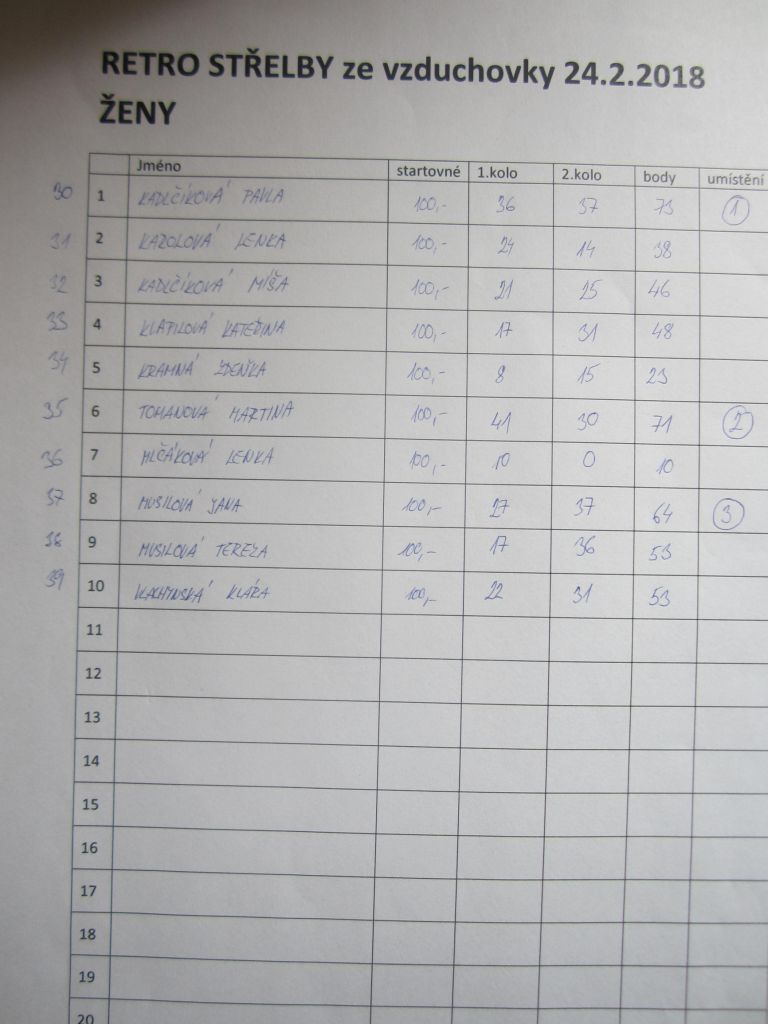 RETRO STŘELBY ze vzduchovky 24.2.2018
ŽENY
Jméno startovné 1.kolo 2.kolo body umístění
30 1 KADLČÍKOVÁ PAVLA 100,- 36 37 73 1
31 2 KAZOLOVÁ LENKA 100,- 24 14 38
32 3 KADLČÍKOVÁ MÍŠA 100,- 21 25 46
33 4 KLATILOVÁ KATEŘINA 100,- 17 31 48
34 5 KRAMNÁ ZDEŇKA 100,- 8 15 23
35 6 TOMANOVÁ MARTINA 100,- 41 30 71 2
36 7 MLČÁKOVÁ LENKA 100,- 10 0 10
37 8 MUSILOVÁ JANA 100,- 27 37 64 3
38 9 MUSILOVÁ TEREZA 100,- 17 36 53
39 10 KLÁRA 100,- 22 31 53
11
12
13
14
15
16
17
18
19
20